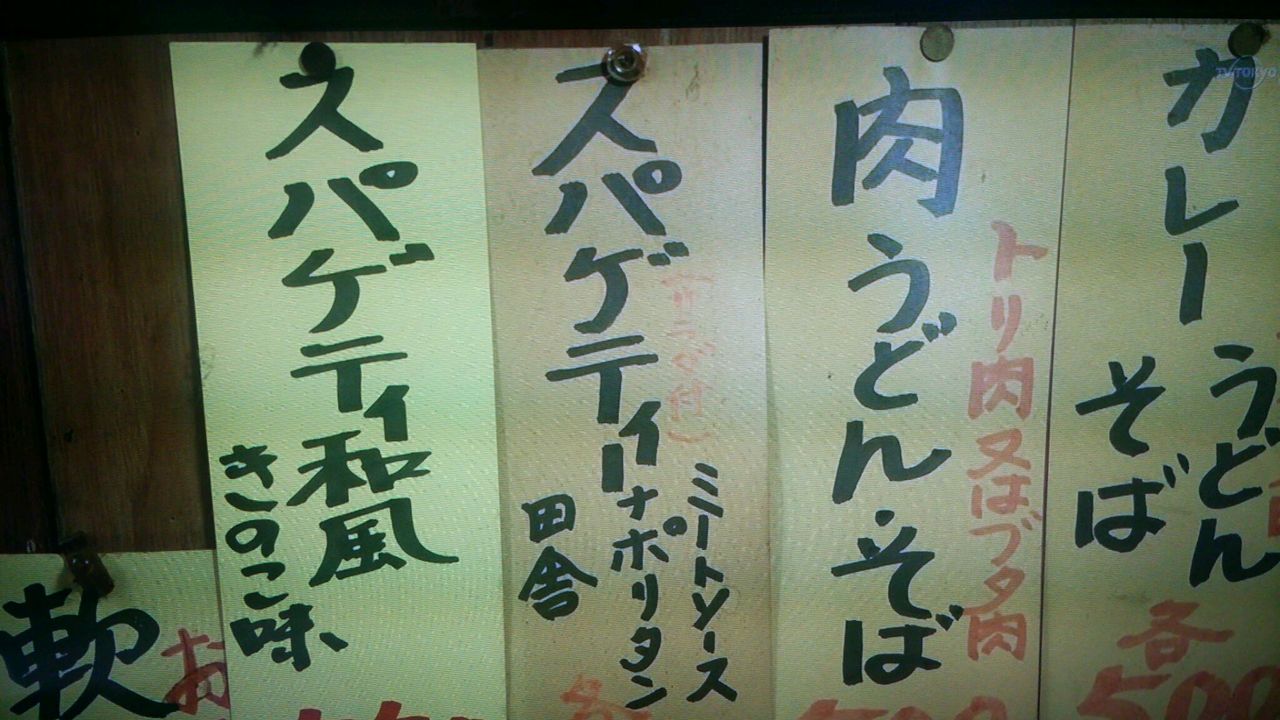 カレー
うどん
そば
各
500
肉うどん・そば
トリ肉又はブタ肉
スパゲティー
ミートソース
ナポリタン
田舎
各
スパゲティ和風
きのこ味
軟
お
TV TOKYO